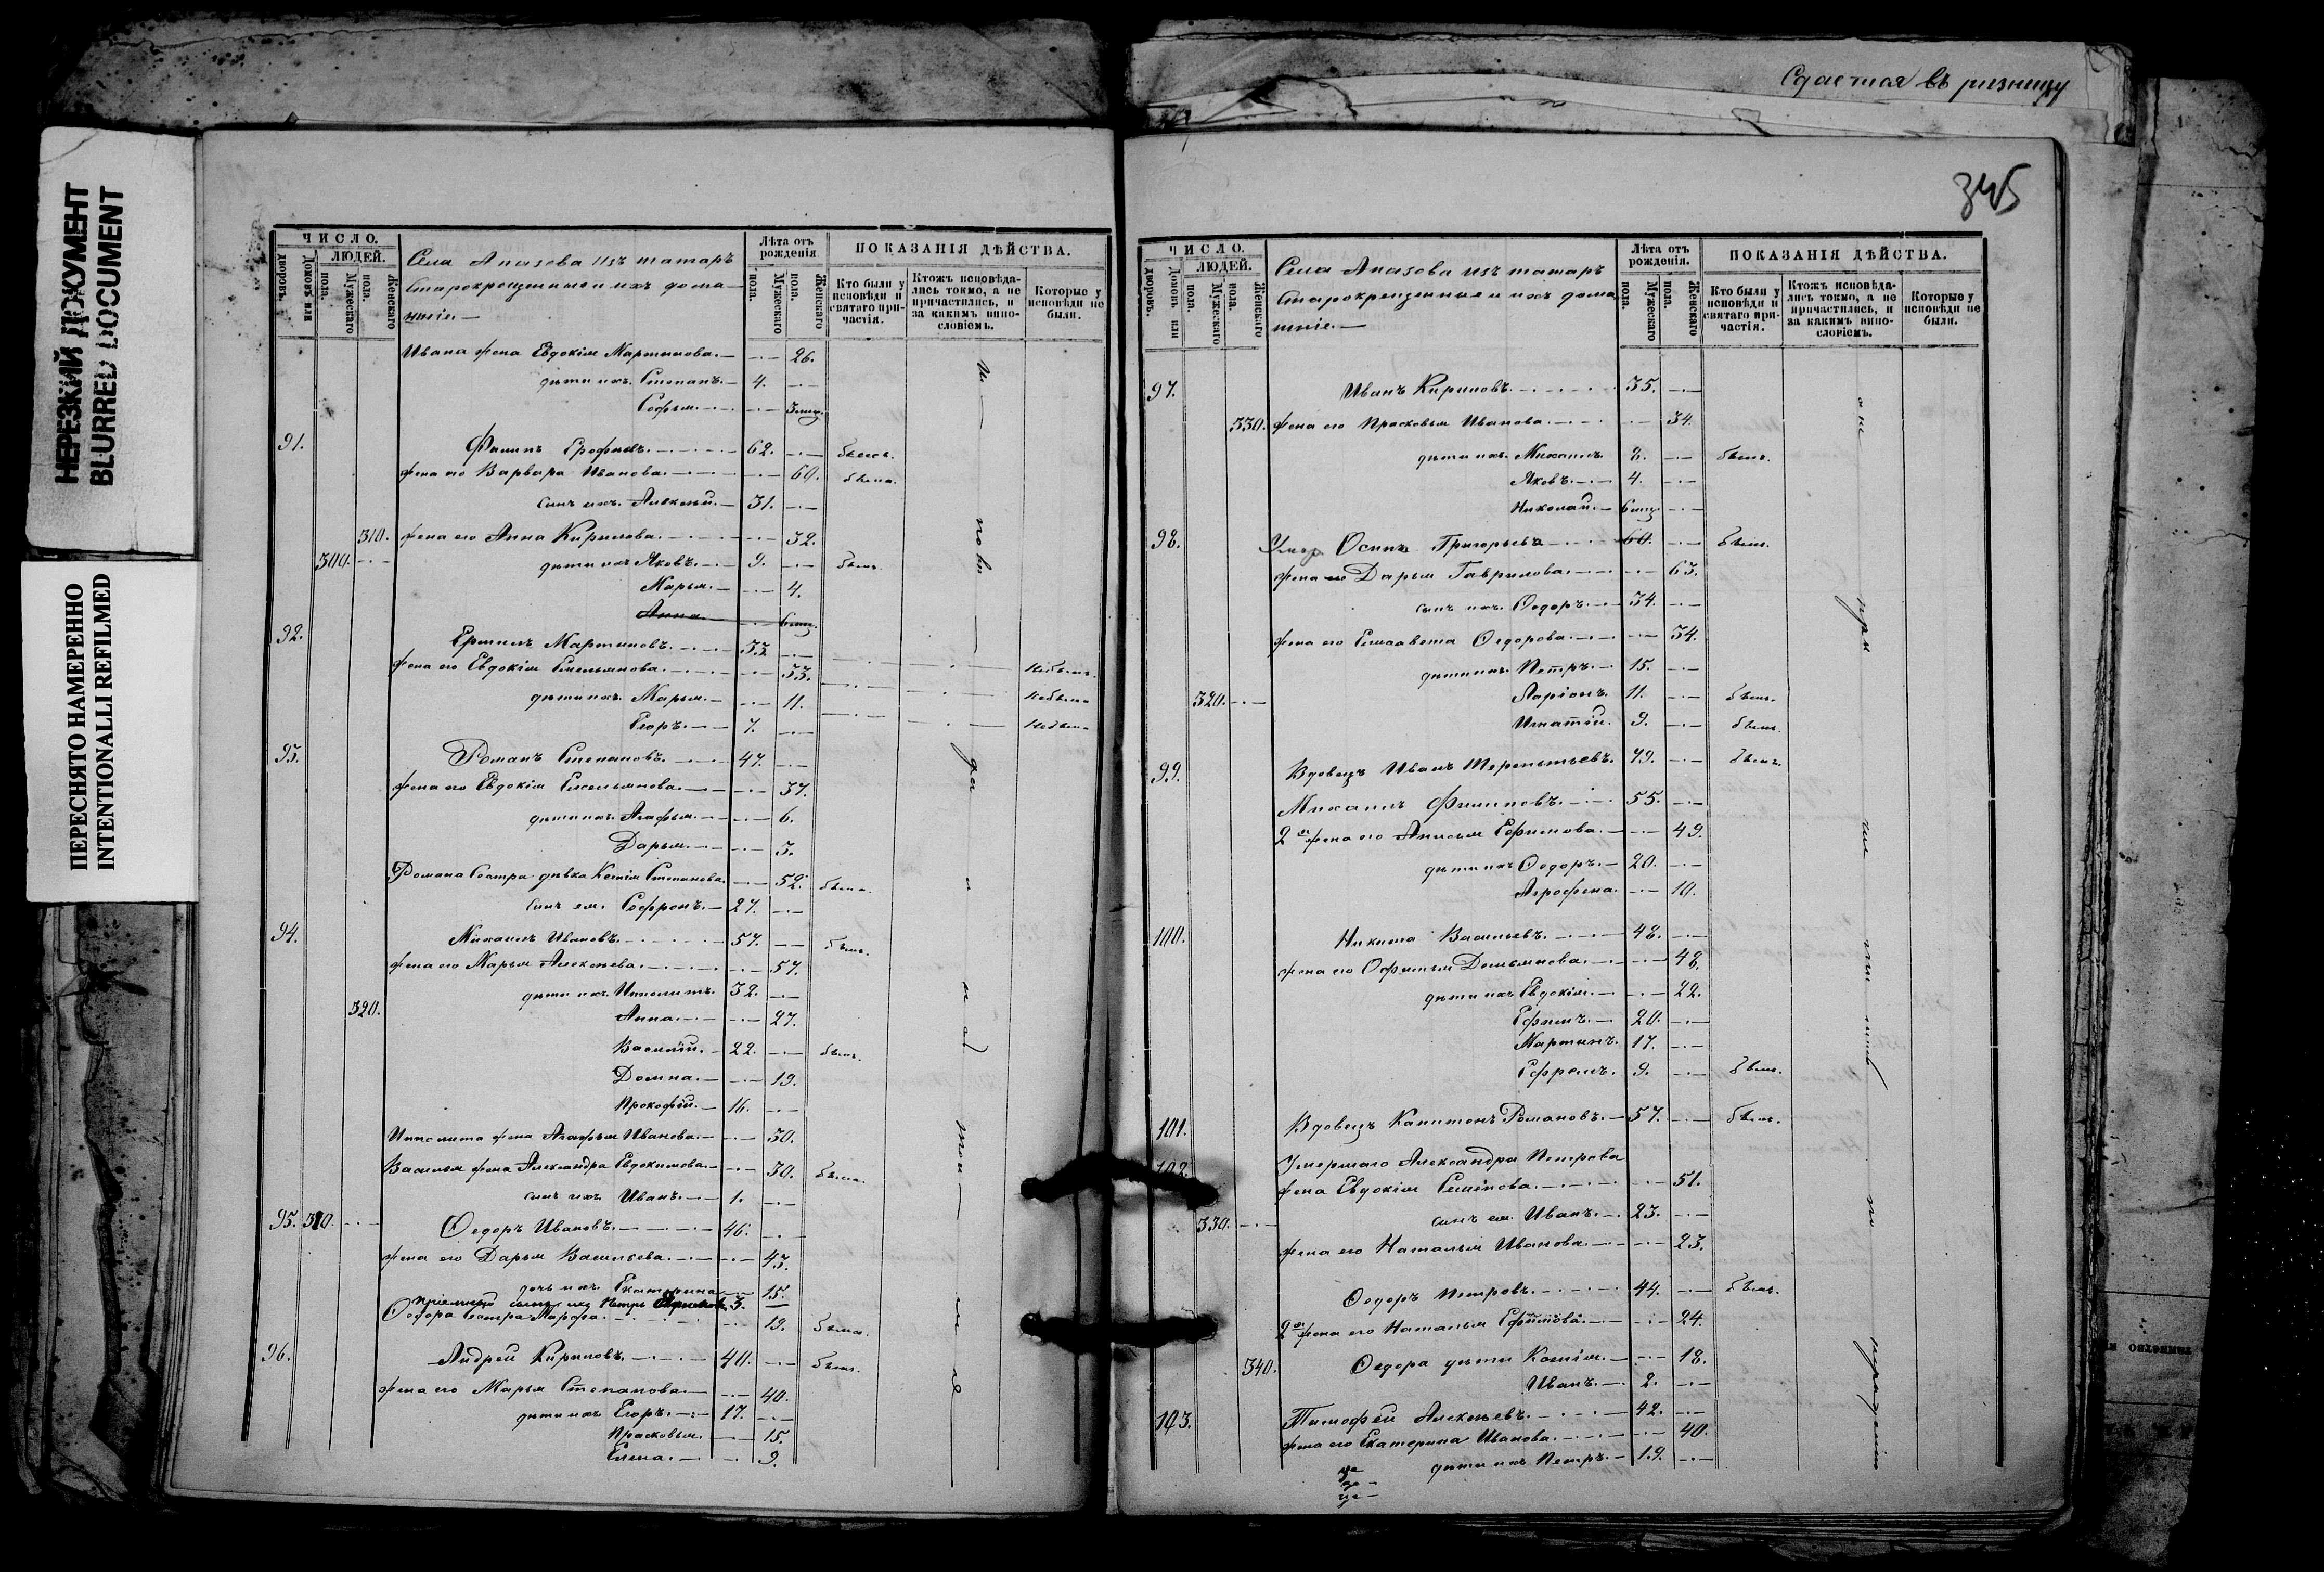 НЕРЕЗКИЙ ДОКУМЕНТ
BLURRED DOCUMENT
ПЕРЕСНЯТО НАМЕРЕННО
INTENTIONALLI REFILMED
ЧИСЛО.
ЛЮДЕЙ.
Домовъ или дворовъ.
Мужескаго пола.
Женскаго пола.
Села Апазова изъ татаръ
старокрещенные и ихъ дома
шніе.—
Лѣта отъ рожденія
Мужескаго пола.
Женскаго пола.
ПОКАЗАНІЯ ДѢЙСТВА.
Кто были у исповѣди и святаго причастія.
Ктожъ исповѣдались токмо, а не причастились, и за какимъ винословіемъ.
Которые у исповѣди не были.
Ивана жена Евдокія Мартинова. 26.
дѣти ихъ. Степанъ. 4.
Софья. 3 мц.
91. Филипъ Ерофѣевъ. 62. былъ.
жена его Варвара Иванова. 60. была.
сынъ ихъ. Алексѣй. 31.
310. жена его Анна Кирилова. 32.
300. дѣти ихъ Яковъ. 9. былъ.
Марья. 4.
Анна. 6 мц.
92. Ермилъ Мартиновъ. 33.
жена его Евдокія Емельянова. 33. Небылъ.
дѣти ихъ. Марья. 11. Небыла
Егоръ. 7. Небылъ
93. Романъ Степановъ. 47.
жена его Евдокія Емельянова. 37.
дѣти ихъ. Агафья. 6.
Дарья. 3.
Романа Сестра дѣвка Ксенія Степанова. 52. была.
сынъ ея. Софронъ. 27.
94. Михаилъ Ивановъ. 57. былъ.
жена его Марья Алексѣева. 57.
дѣти ихъ. Ипполитъ. 32.
320. Анна. 27.
Василій. 22. былъ.
Домна. 19.
Прокофій. 16.
Ипполита жена Агафья Иванова. 30.
Василья жена Александра Евдокимова. 30. была.
сынъ ихъ Иванъ. 1.
95. 310. Ѳедоръ Ивановъ. 46.
жена его Дарья Васильева. 43.
дочь ихъ Екатерина 15.
пріемный сынъ Петръ 3.
Ѳедора Сестра Марфа. 19. была.
96. Андрей Кириловъ. 40. былъ.
жена его Марья Степанова. 40.
дѣти ихъ Егоръ. 17.
Прасковья. 15.
Елена. 9.
Сдается въ ризницу
345
ЧИСЛО.
ЛЮДЕЙ.
Домовъ или дворовъ.
Мужескаго пола.
Женскаго пола.
Села Апазова изъ татаръ
Старокрещенные и ихъ дома
шніе.—
Лѣта отъ рожденія.
Мужескаго пола.
Женскаго пола.
ПОКАЗАНІЯ ДѢЙСТВА.
Кто были у исповѣди и святаго причастія.
Ктожъ исповѣдались токмо, а не причастились, и за какимъ винословіемъ.
Которые у исповѣди не были.
97. Иванъ Кириловъ. 35.
330. жена его Прасковья Иванова. 34.
дѣти ихъ. Михаилъ. 8. былъ.
Яковъ. 4.
Николай. 6 мц.
98. Умер Осипъ Григорьевъ 60. былъ.
жена его Дарья Гаврилова. 63.
сынъ ихъ. Ѳедоръ. 34.
жена его Елисавета Ѳедорова. 34.
дѣти ихъ. Петръ. 15.
320. Ларіонъ. 11. былъ.
Игнатій. 9. былъ.
99. Вдовецъ Иванъ Терентьевъ. 79. былъ.
Михаилъ Филиповъ. 55.
2я жена его Анисья Ефимова. 49.
дѣти ихъ Ѳедоръ. 20.
Агрофена. 10.
100. Никита Васильевъ. 48.
жена его Ѳофимья Демьянова. 48.
дѣти ихъ Евдокія. 22.
Ефимъ. 20.
Мартинъ. 17.
Ефремъ. 9. былъ.
101. Вдовецъ Капитонъ Романовъ. 57. былъ.
102. Умершаго Александра Петрова
жена Евдокія Семенова. 51.
330. сынъ ея. Иванъ. 23.
жена его Наталья Иванова. 23.
Ѳедоръ Петровъ. 44. былъ.
2я жена его Наталья 24.
340. Ѳедора дѣти Ксенія. 18.
Иванъ. 2.
103. Тимофей Алексѣевъ. 42.
жена его Екатерина Иванова. 40.
дѣти ихъ Петръ. 19.